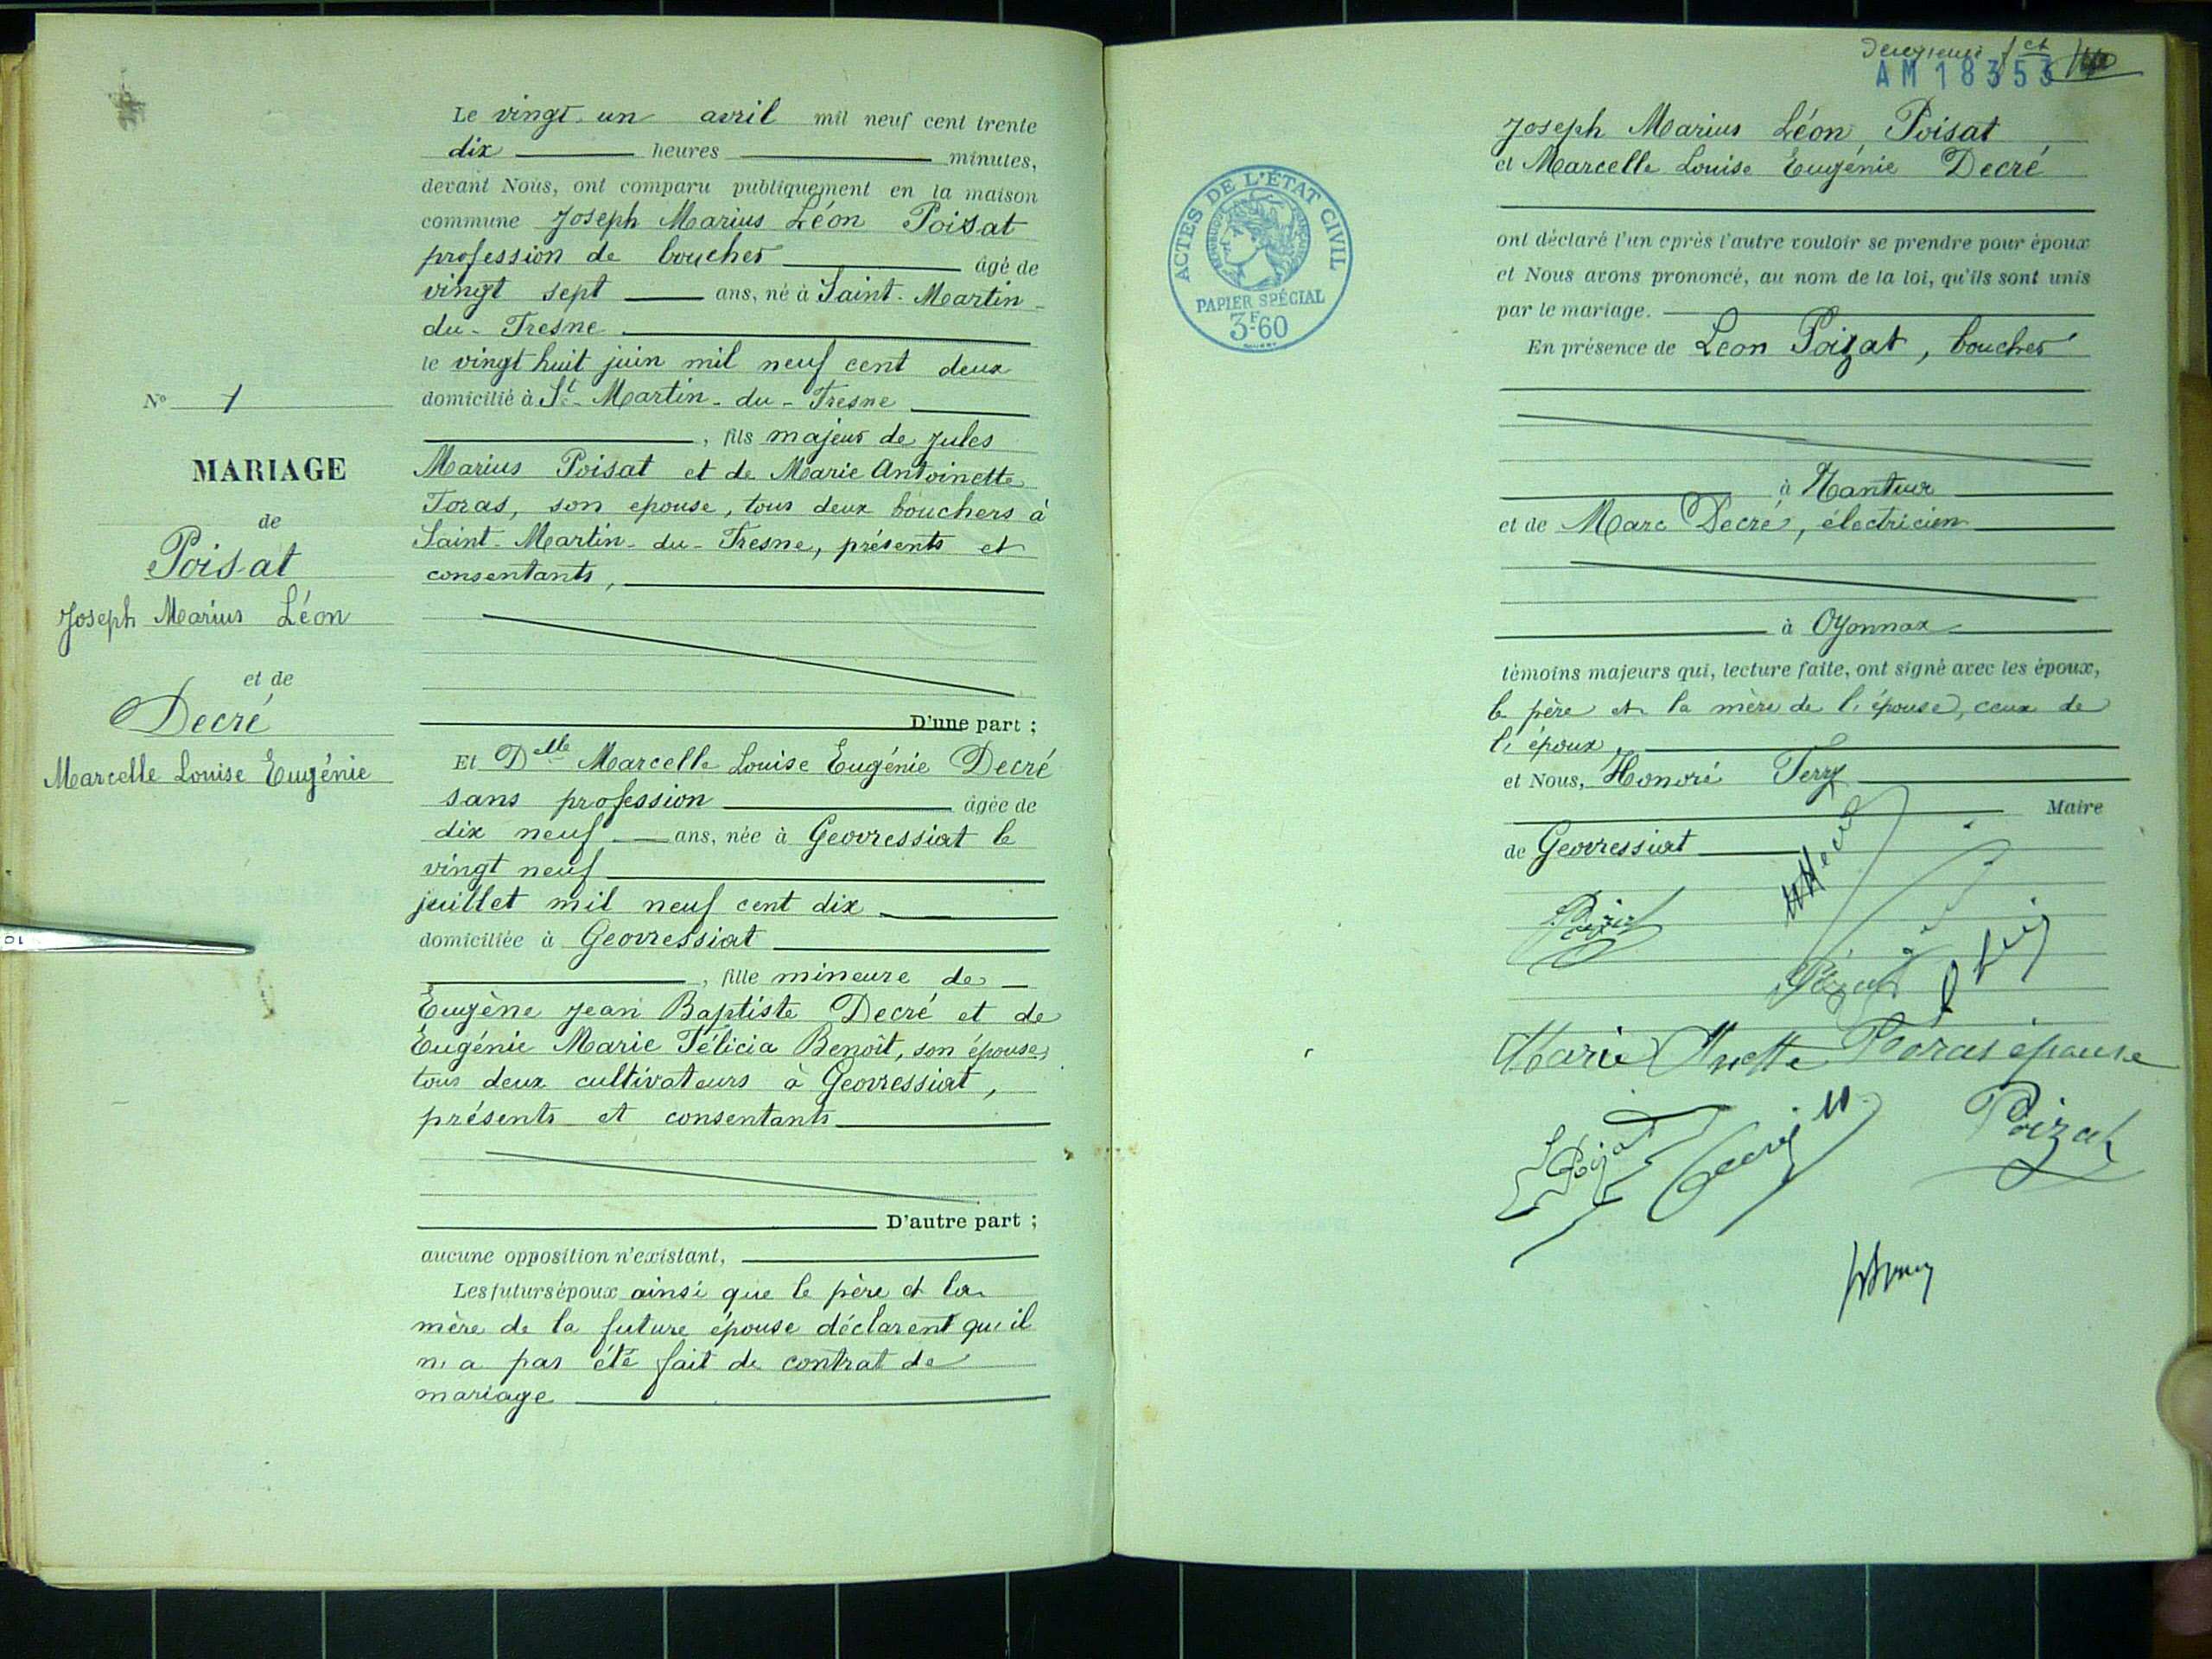 N° 1
MARIAGE
de
Poisat
Joseph Marius Léon
et de
Decré
Marcelle Louise Eugénie
Le vingt un avril mil neuf cent trente
dix heures minutes,
devant Nous, ont comparu publiquement en la maison
commune Joseph Marius Léon Poisat
profession de boucher âgé de
vingt sept ans, né à Saint-Martin-
du-Fresne
le vingt huit juin mil neuf cent deux
domicilié à St-Martin-du-Fresne
, fils majeur de Jules
Marius Poisat et de Marie Antoinette
Foras, son epouse, tous deux bouchers à
Saint-Martin-du-Fresne, présents et
consentants,
D'une part ;
Et Delle Marcelle Louise Eugénie Decré
sans profession âgée de
dix neuf ans, née à Geovressiat le
vingt neuf
juillet mil neuf cent dix
domiciliée à Geovressiat
, fille mineure de
Eugène Jean Baptiste Decré et de
Eugénie Marie Félicia Benoît, son épouse,
tous deux cultivateurs à Geovressiat,
présents et consentants
D'autre part ;
aucune opposition n'existant,
Les futurs époux ainsi que le père et la
mère de la future épouse déclarent qu'il
n'a pas été fait de contrat de
mariage
AM 18353
ACTES DE L'ÉTAT CIVIL
RÉPUBLIQUE FRANÇAISE
PAPIER SPÉCIAL
3F60
Joseph Marius Léon Poisat
et Marcelle Louise Eugénie Decré
ont déclaré l'un après l'autre vouloir se prendre pour époux
et Nous avons prononcé, au nom de la loi, qu'ils sont unis
par le mariage.
En présence de Léon Poizat, boucher
à Nantua
et de Marc Decré, électricien
à Oyonnax
témoins majeurs qui, lecture faite, ont signé avec les époux,
le père et la mère de l'épouse, ceux de
l'époux
et Nous, Honoré Ferry
Maire
de Geovressiat
Marie Foras épouse
Poizat
10